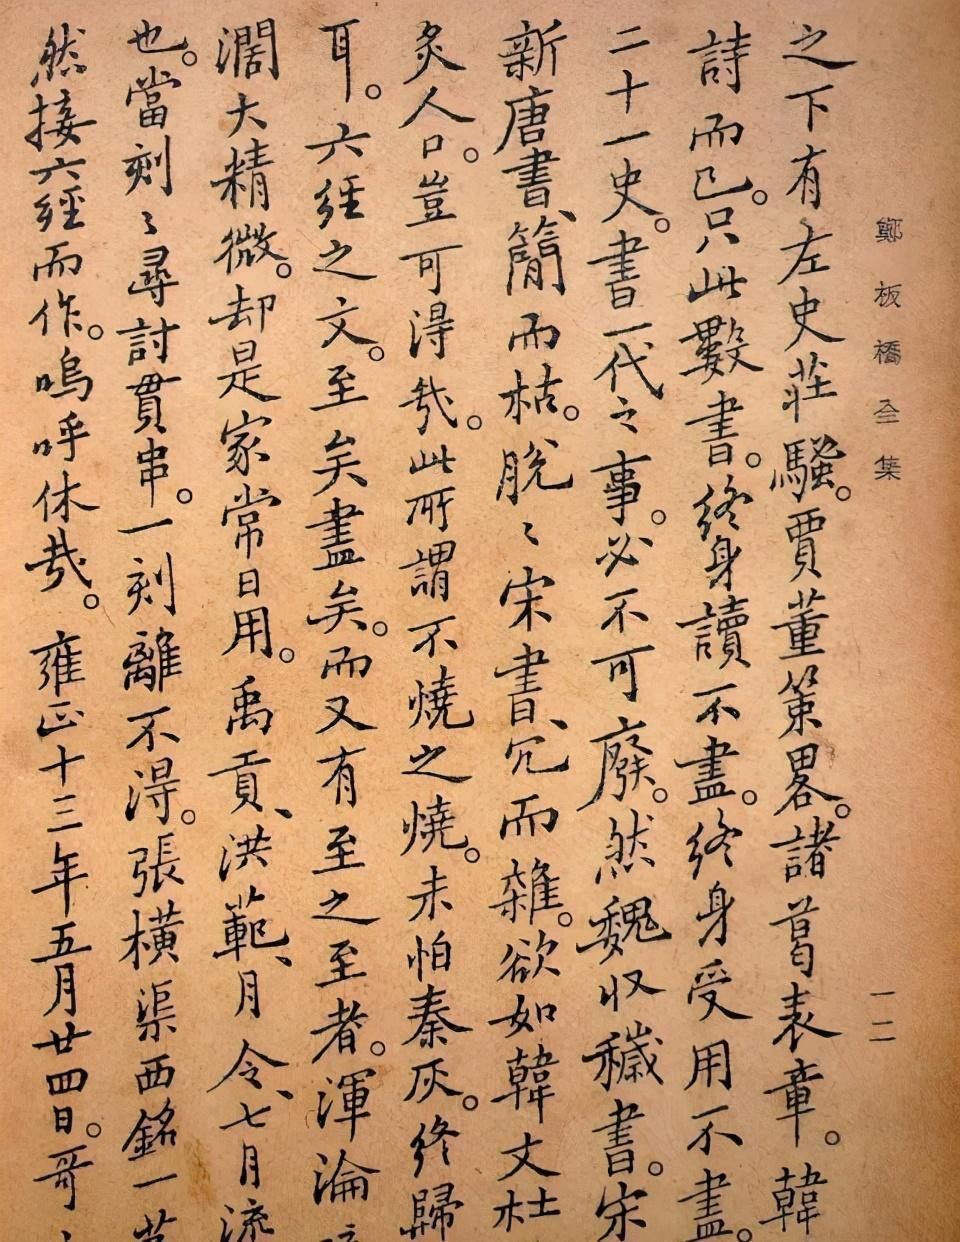 鄭板橋全集
一二
之下有左史莊騷。賈董策畧。諸葛表章。韓
詩而已。只此數書。終身讀不盡。終身受用不盡。
二十一史。書一代之事。必不可廢。然魏収穢書。宋
新唐書、簡而枯。脫〻宋書、冗而雜。欲如韓文杜
炙人口。豈可得哉。此所謂不燒之燒。未怕秦灰。終歸
耳。六經之文。至矣盡矣。而又有至之至者。渾淪
濶大精微。却是家常日用。禹貢、洪範、月令、七月流
也。當刻〻尋討貫串。一刻離不得。張橫渠西銘一
然接六經而作。嗚呼休哉。雍正十三年五月廿四日。哥